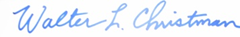 Walter L. Christman